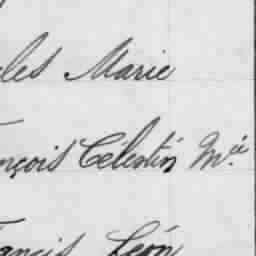 les Marie
nçois Célestin M.ie
ancis Léon